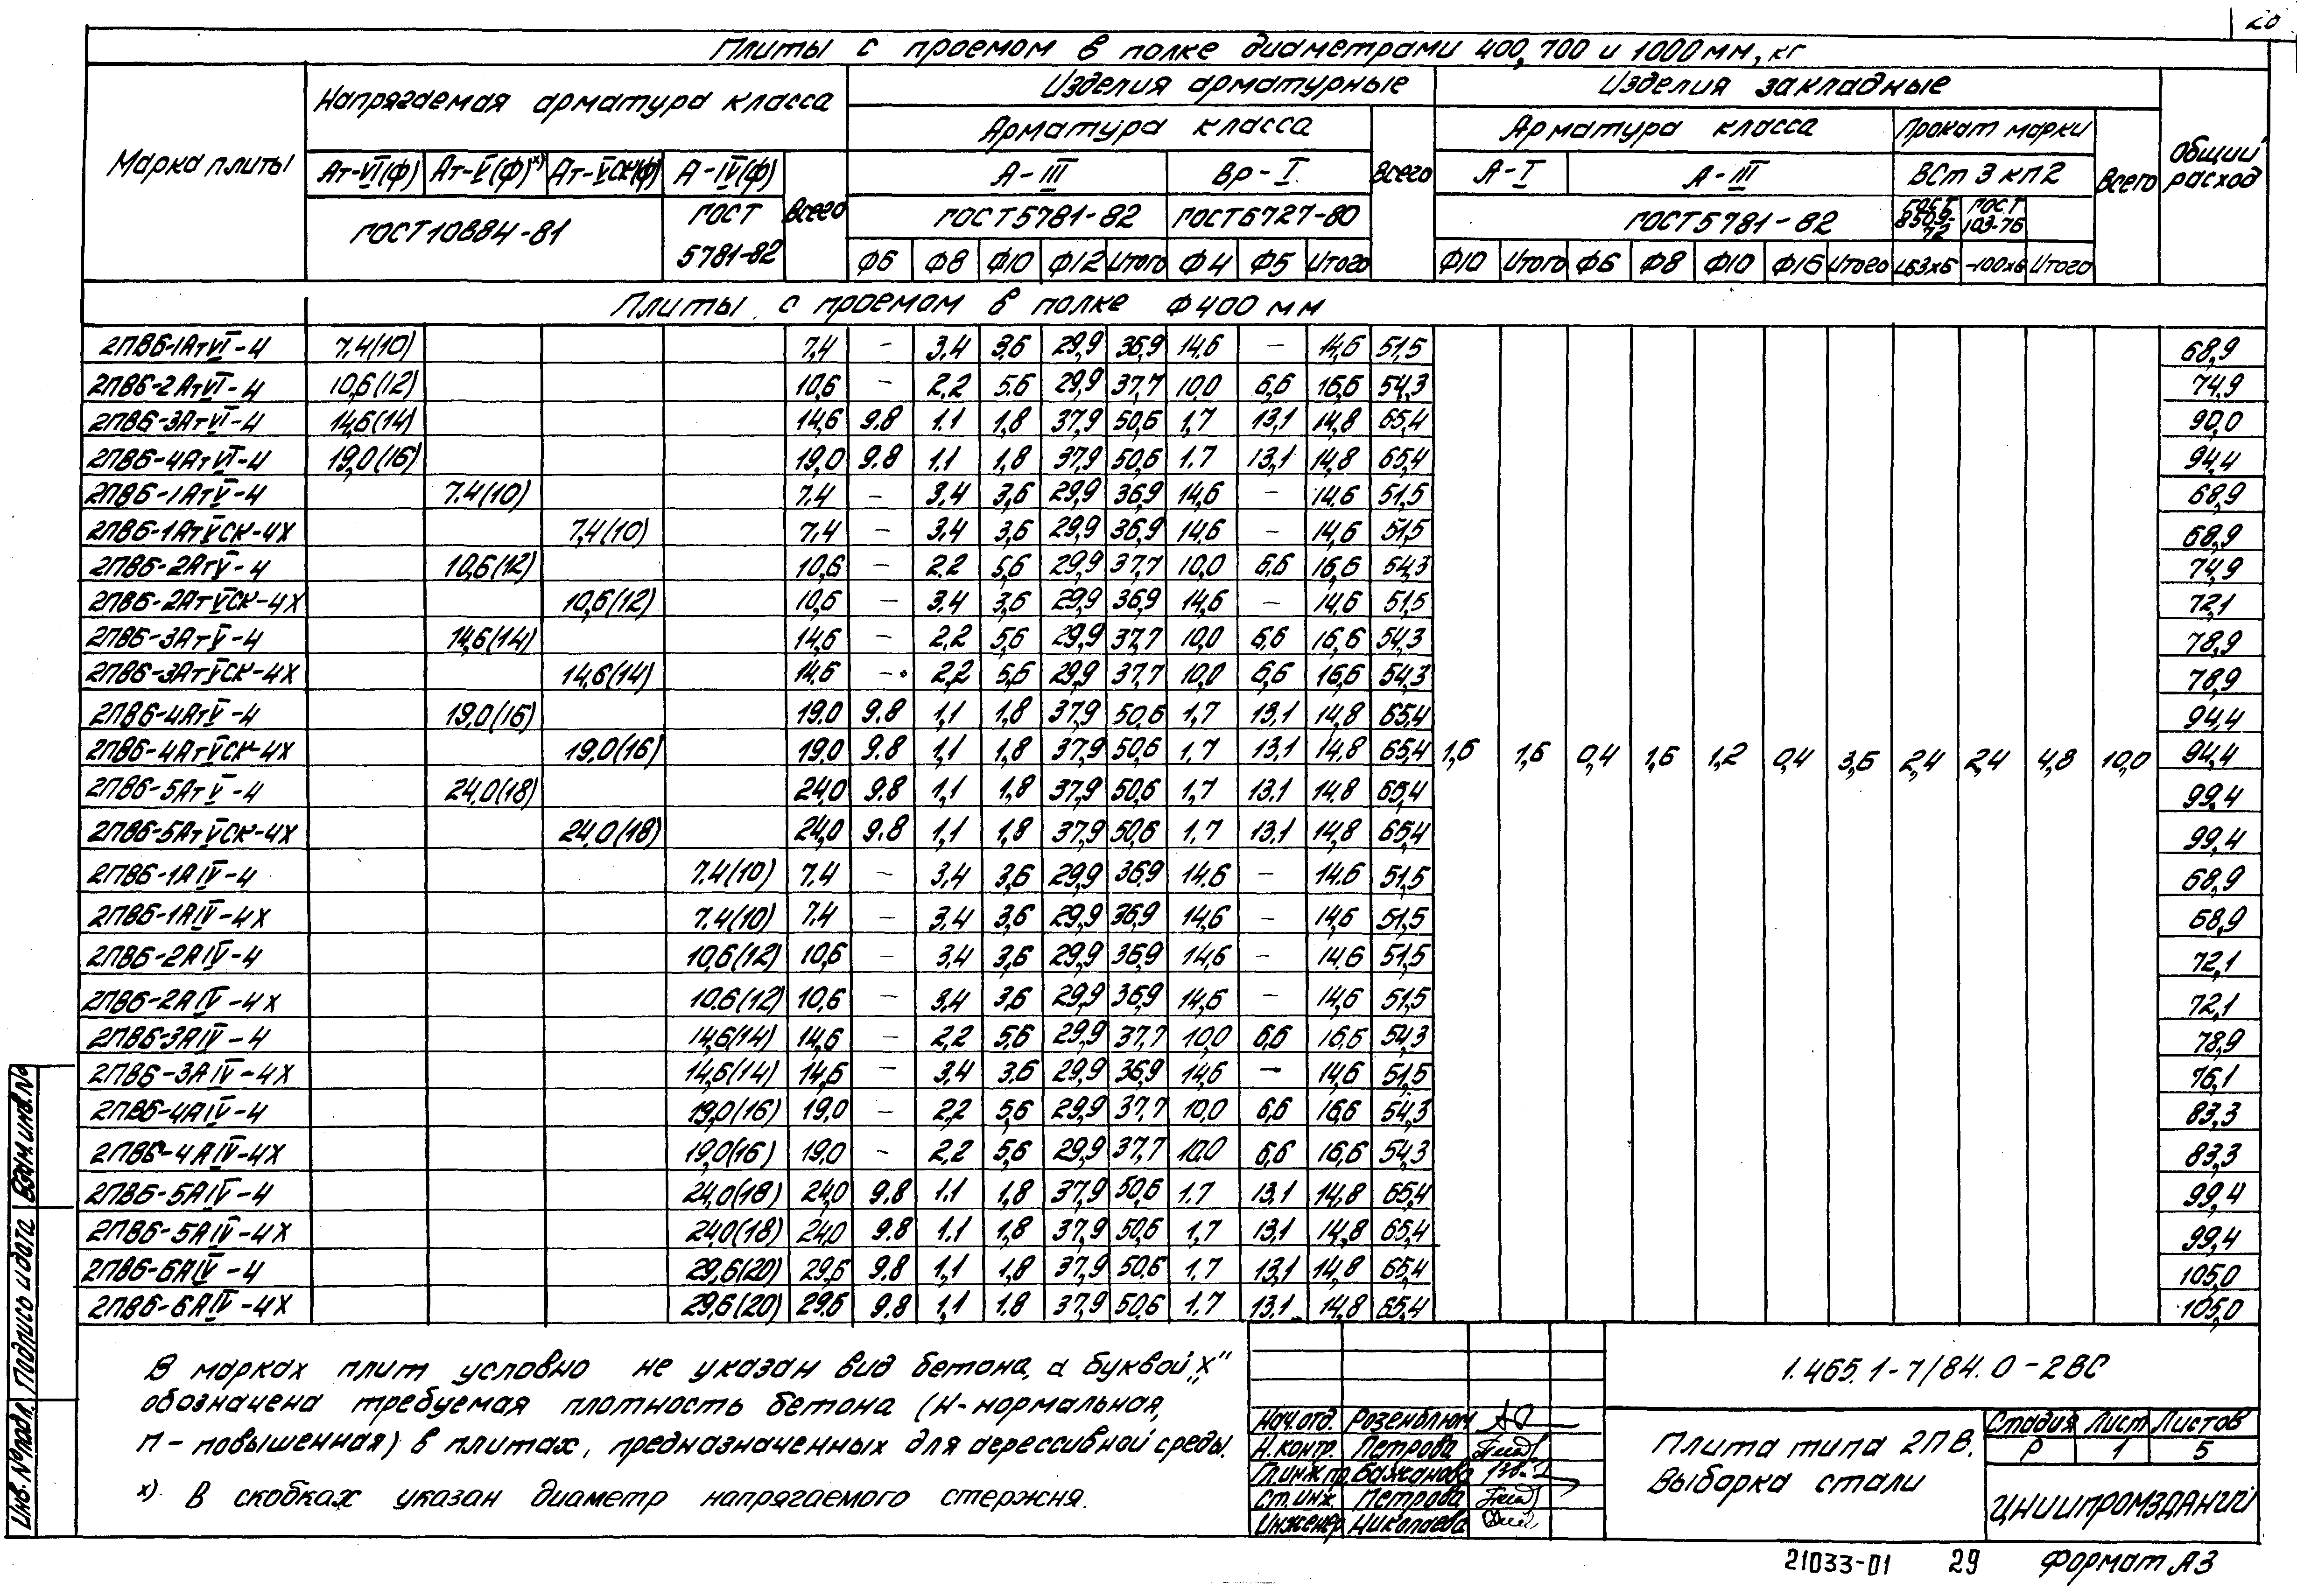 20
Плиты с проемом в полке диаметрами 400, 700 и 1000мм, кг
Марка плиты | Напрягаемая арматура класса | Изделия арматурные | Изделия закладные | Общий расход
Арматура класса | Всего | Арматура класса | Прокат марки | Всего
Ат-VI(ф) | Ат-V(ф)х) | Ат-VСК(ф) | А-IV(ф) | Всего | А-III | Вр-I | А-I | А-III | ВСт 3 кп2
ГОСТ 10884-81 | ГОСТ 5781-82 | ГОСТ 5781-82 | ГОСТ 6727-80 | ГОСТ 5781-82 | ГОСТ 8509-72 | ГОСТ 103-76
ф6 | ф8 | ф10 | ф12 | Итого | ф4 | ф5 | Итого | ф10 | Итого | ф6 | ф8 | ф10 | ф16 | Итого | L63х6 | -100х6 | Итого
Плиты с проемом в полке ф400 мм
2ПВ6-1АтVI-4 | 7,4(10) | 7,4 | - | 3,4 | 3,6 | 29,9 | 36,9 | 14,6 | - | 14,6 | 51,5 | 68,9
2ПВ6-2АтVI-4 | 10,6(12) | 10,6 | - | 2,2 | 5,6 | 29,9 | 37,7 | 10,0 | 6,6 | 16,6 | 54,3 | 74,9
2ПВ6-3АтVI-4 | 14,6(14) | 14,6 | 9,8 | 1,1 | 1,8 | 37,9 | 50,6 | 1,7 | 13,1 | 14,8 | 65,4 | 90,0
2ПВ6-4АтVI-4 | 19,0(16) | 19,0 | 9,8 | 1,1 | 1,8 | 37,9 | 50,6 | 1,7 | 13,1 | 14,8 | 65,4 | 94,4
2ПВ6-1АтV-4 | 7,4(10) | 7,4 | - | 3,4 | 3,6 | 29,9 | 36,9 | 14,6 | - | 14,6 | 51,5 | 68,9
2ПВ6-1АтVСК-4Х | 7,4(10) | 7,4 | - | 3,4 | 3,6 | 29,9 | 36,9 | 14,6 | - | 14,6 | 51,5 | 68,9
2ПВ6-2АтV-4 | 10,6(12) | 10,6 | - | 2,2 | 5,6 | 29,9 | 37,7 | 10,0 | 6,6 | 16,6 | 54,3 | 74,9
2ПВ6-2АтVСК-4Х | 10,6(12) | 10,6 | - | 3,4 | 3,6 | 29,9 | 36,9 | 14,6 | - | 14,6 | 51,5 | 72,1
2ПВ6-3АтV-4 | 14,6(14) | 14,6 | - | 2,2 | 5,6 | 29,9 | 37,7 | 10,0 | 6,6 | 16,6 | 54,3 | 78,9
2ПВ6-3АтVСК-4Х | 14,6(14) | 14,6 | - | 2,2 | 5,6 | 29,9 | 37,7 | 10,0 | 6,6 | 16,6 | 54,3 | 78,9
2ПВ6-4АтV-4 | 19,0(16) | 19,0 | 9,8 | 1,1 | 1,8 | 37,9 | 50,6 | 1,7 | 13,1 | 14,8 | 65,4 | 94,4
2ПВ6-4АтVСК-4Х | 19,0(16) | 19,0 | 9,8 | 1,1 | 1,8 | 37,9 | 50,6 | 1,7 | 13,1 | 14,8 | 65,4 | 1,6 | 1,6 | 0,4 | 1,6 | 1,2 | 0,4 | 3,6 | 2,4 | 2,4 | 4,8 | 10,0 | 94,4
2ПВ6-5АтV-4 | 24,0(18) | 24,0 | 9,8 | 1,1 | 1,8 | 37,9 | 50,6 | 1,7 | 13,1 | 14,8 | 65,4 | 99,4
2ПВ6-5АтVСК-4Х | 24,0(18) | 24,0 | 9,8 | 1,1 | 1,8 | 37,9 | 50,6 | 1,7 | 13,1 | 14,8 | 65,4 | 99,4
2ПВ6-1АIV-4 | 7,4(10) | 7,4 | - | 3,4 | 3,6 | 29,9 | 36,9 | 14,6 | - | 14,6 | 51,5 | 68,9
2ПВ6-1АIV-4Х | 7,4(10) | 7,4 | - | 3,4 | 3,6 | 29,9 | 36,9 | 14,6 | - | 14,6 | 51,5 | 68,9
2ПВ6-2АIV-4 | 10,6(12) | 10,6 | - | 3,4 | 3,6 | 29,9 | 36,9 | 14,6 | - | 14,6 | 51,5 | 72,1
2ПВ6-2АIV-4Х | 10,6(12) | 10,6 | - | 3,4 | 3,6 | 29,9 | 36,9 | 14,6 | - | 14,6 | 51,5 | 72,1
2ПВ6-3АIV-4 | 14,6(14) | 14,6 | - | 2,2 | 5,6 | 29,9 | 37,7 | 10,0 | 6,6 | 16,6 | 54,3 | 78,9
2ПВ6-3АIV-4Х | 14,6(14) | 14,6 | - | 3,4 | 3,6 | 29,9 | 36,9 | 14,6 | - | 14,6 | 51,5 | 76,1
2ПВ6-4АIV-4 | 19,0(16) | 19,0 | - | 2,2 | 5,6 | 29,9 | 37,7 | 10,0 | 6,6 | 16,6 | 54,3 | 83,3
2ПВ6-4АIV-4Х | 19,0(16) | 19,0 | - | 2,2 | 5,6 | 29,9 | 37,7 | 10,0 | 6,6 | 16,6 | 54,3 | 83,3
2ПВ6-5АIV-4 | 24,0(18) | 24,0 | 9,8 | 1,1 | 1,8 | 37,9 | 50,6 | 1,7 | 13,1 | 14,8 | 65,4 | 99,4
2ПВ6-5АIV-4Х | 24,0(18) | 24,0 | 9,8 | 1,1 | 1,8 | 37,9 | 50,6 | 1,7 | 13,1 | 14,8 | 65,4 | 99,4
2ПВ6-6АIV-4 | 29,6(20) | 29,6 | 9,8 | 1,1 | 1,8 | 37,9 | 50,6 | 1,7 | 13,1 | 14,8 | 65,4 | 105,0
2ПВ6-6АIV-4Х | 29,6(20) | 29,6 | 9,8 | 1,1 | 1,8 | 37,9 | 50,6 | 1,7 | 13,1 | 14,8 | 65,4 | 105,0
В марках плит условно не указан вид бетона, а буквой „х"
обозначена требуемая плотность бетона (Н-нормальная,
П-повышенная) в плитах, предназначенных для агрессивной среды.
х). В скобках указан диаметр напрягаемого стержня.
Инв. №подл. | Подпись и дата | Взам.инв.№
Нач.отд. Розенблюм
Н.контр. Петрова
Гл.инж.пр. Бажанова
Ст.инж. Петрова
Инженер Николаева
1.465.1-7/84.0-2ВС
Плита типа 2ПВ.
Выборка стали
Стадия | Лист | Листов
Р | 1 | 5
ЦНИИПРОМЗДАНИЙ
21033-01 29 Формат А3